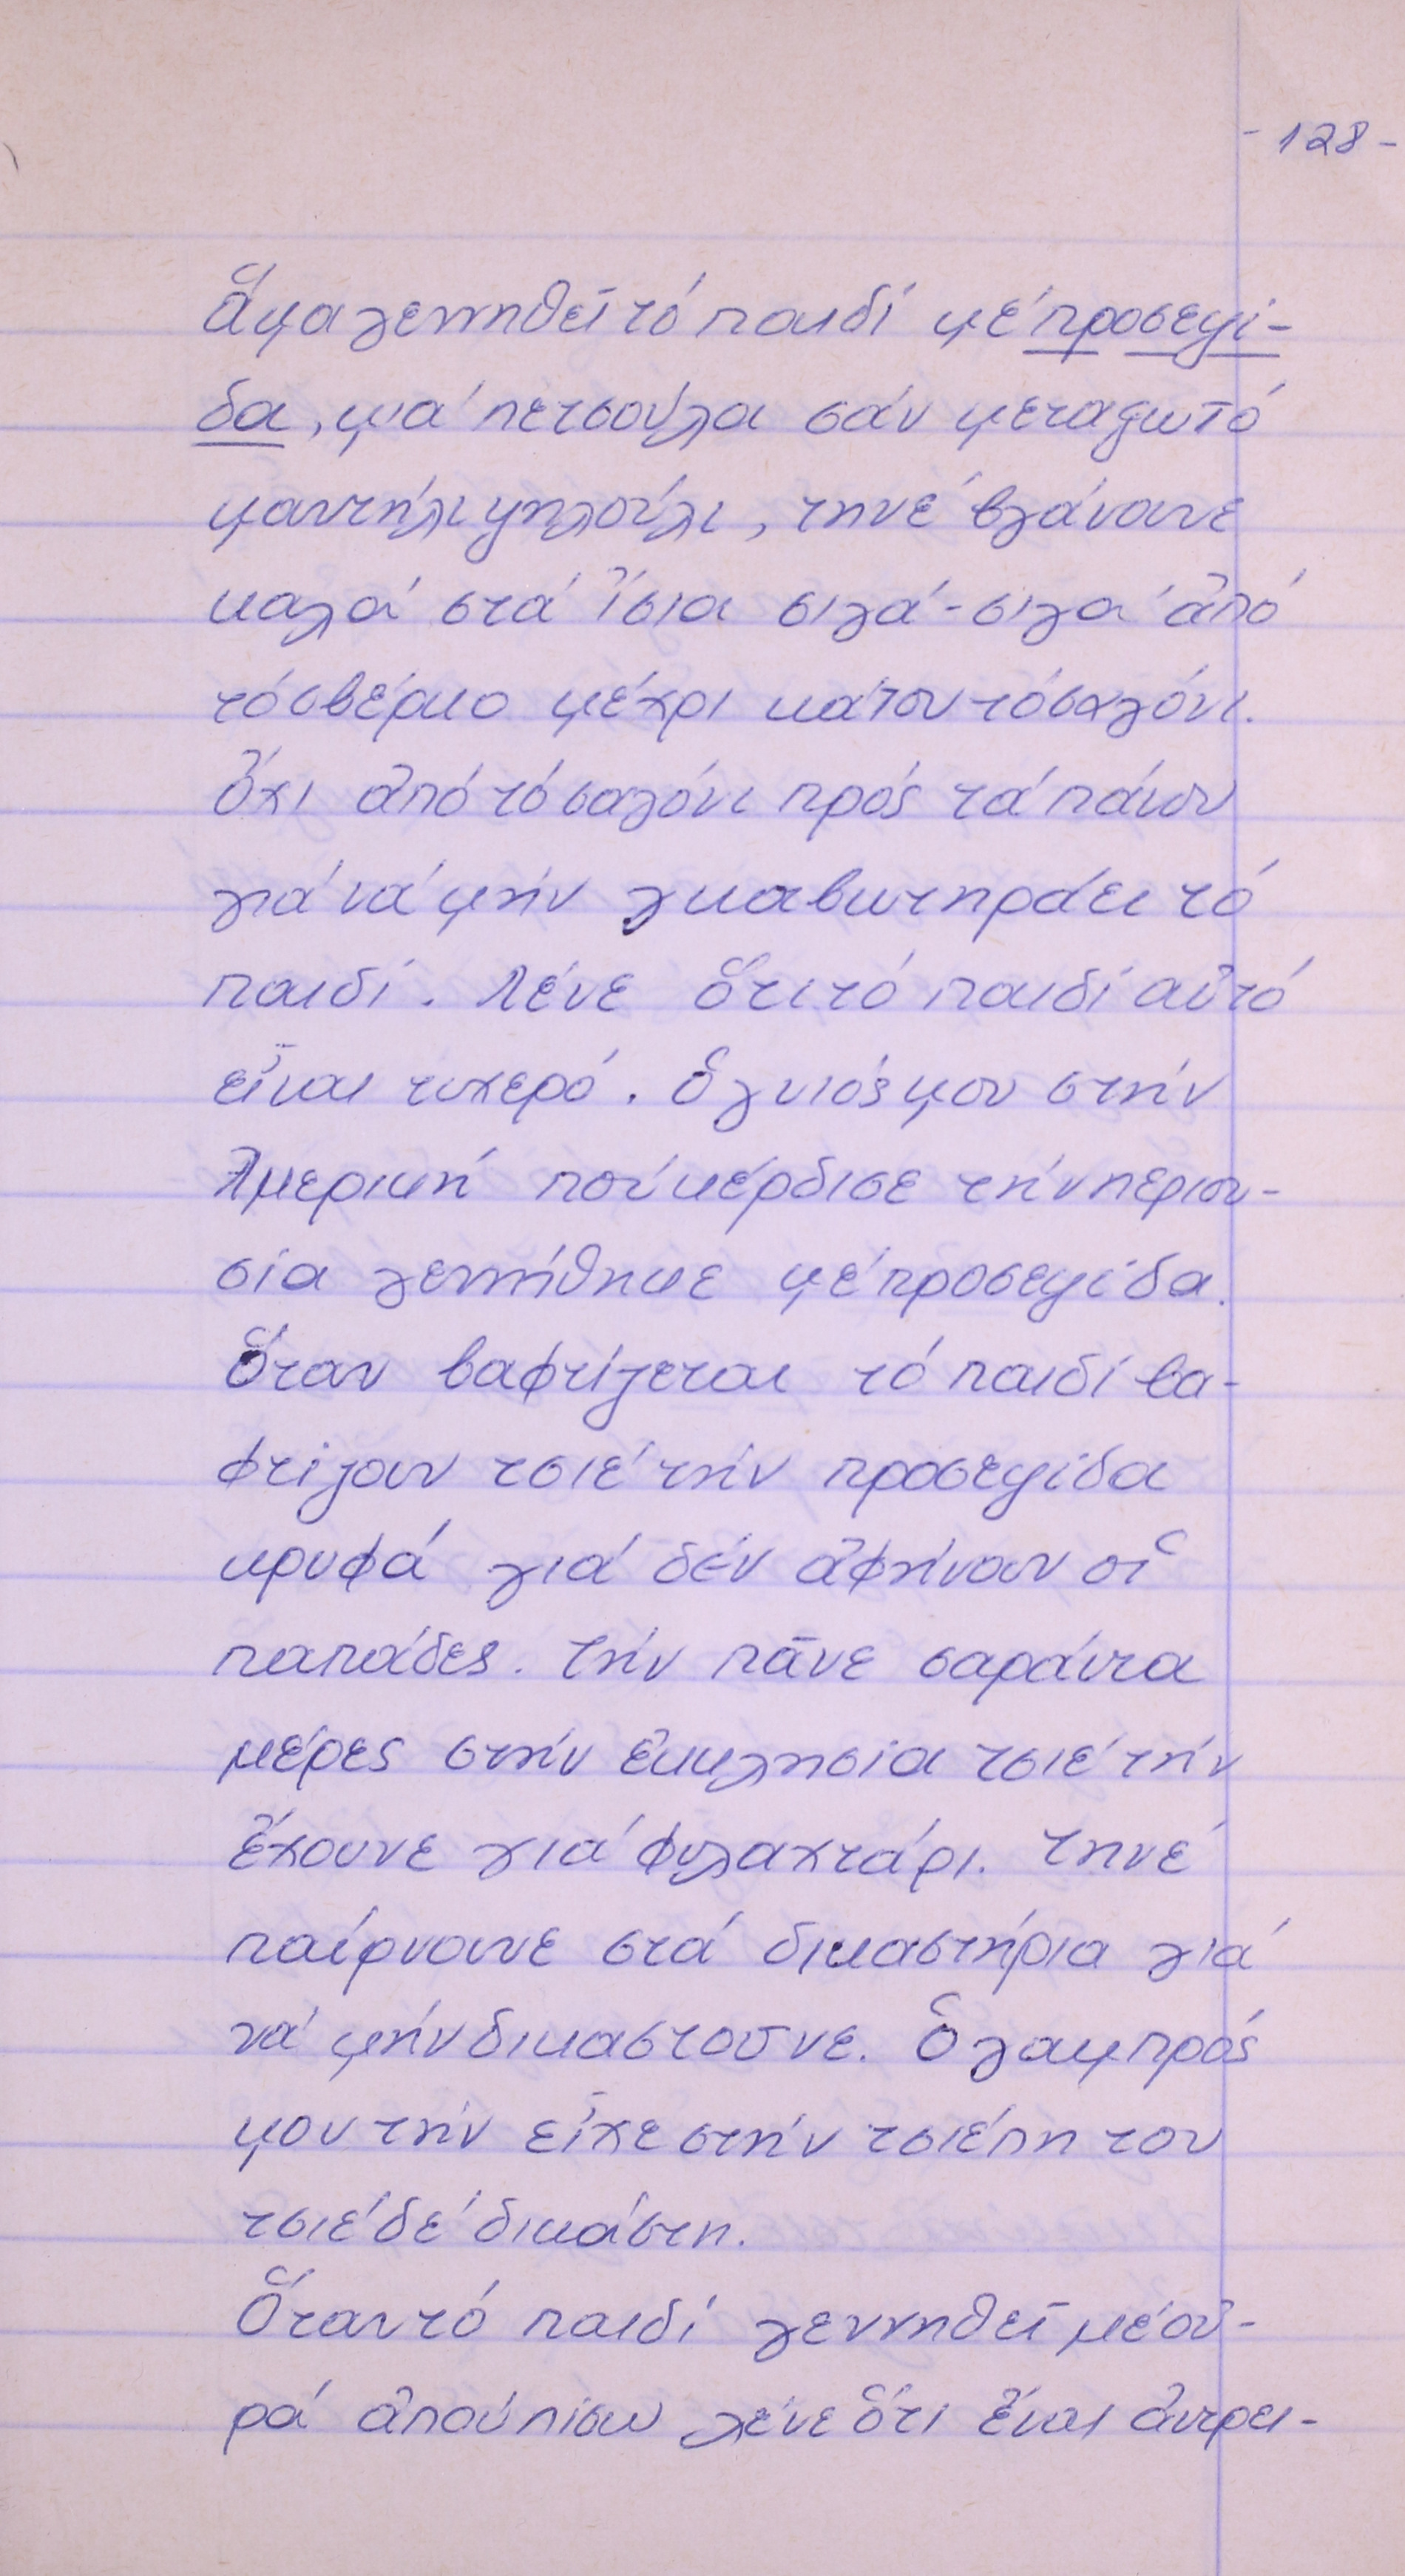 - 128 -
Ἅμα γεννηθεῖ τό παιδί μέ προσεψί-
δα, μιά πετσούλα σάν μεταξωτό
μαντήλι ψηλούλι, τηνέ βγάνανε
καλά στά ἴσια σιγά-σιγά ἀπό
τό σβέρκο μέχρι κάτου τό σαγόνι.
Ὄχι ἀπό τό σαγόνι πρός τά πάνου
γιά νά μήν γκαβωτηράει τό
παιδί. Λένε ὅτι τό παιδί αὐτό
εἶναι τυχερό. Ὁ γυιός μου στήν
Ἀμερική πού κέρδισε τήν περιου-
σία γεννήθηκε μέ προσεψίδα.
Ὅταν βαφτίζεται τό παιδί βα-
φτίζουν τσιέ τήν προσεψίδα
κρυφά γιά δέν ἀφήνουν οἱ
παπάδες. Τήν πᾶνε σαράντα
μέρες στήν ἐκκλησία τσιέ τήν
ἔχουνε γιά φυλαχτάρι. Τηνέ
παίρνανε στά δικαστήρια γιά
νά μήν δικαστοῦνε. Ὁ γαμπρός
μου τήν εἶχε στήν τσιέπη του
τσιέ δέ δικάστη.
Ὅταν τό παιδί γεννηθεῖ μέ οὐ-
ρά ἀπού πίσω λένε ὅτι ἔναι ἀντρει-